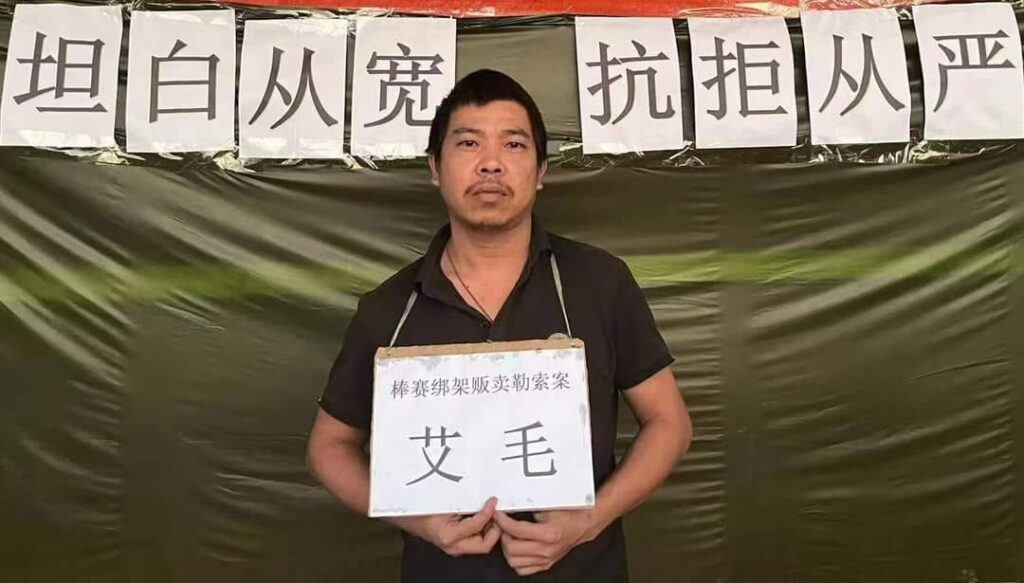 坦白从宽 抗拒从严
棒赛绑架贩卖勒索案
艾毛